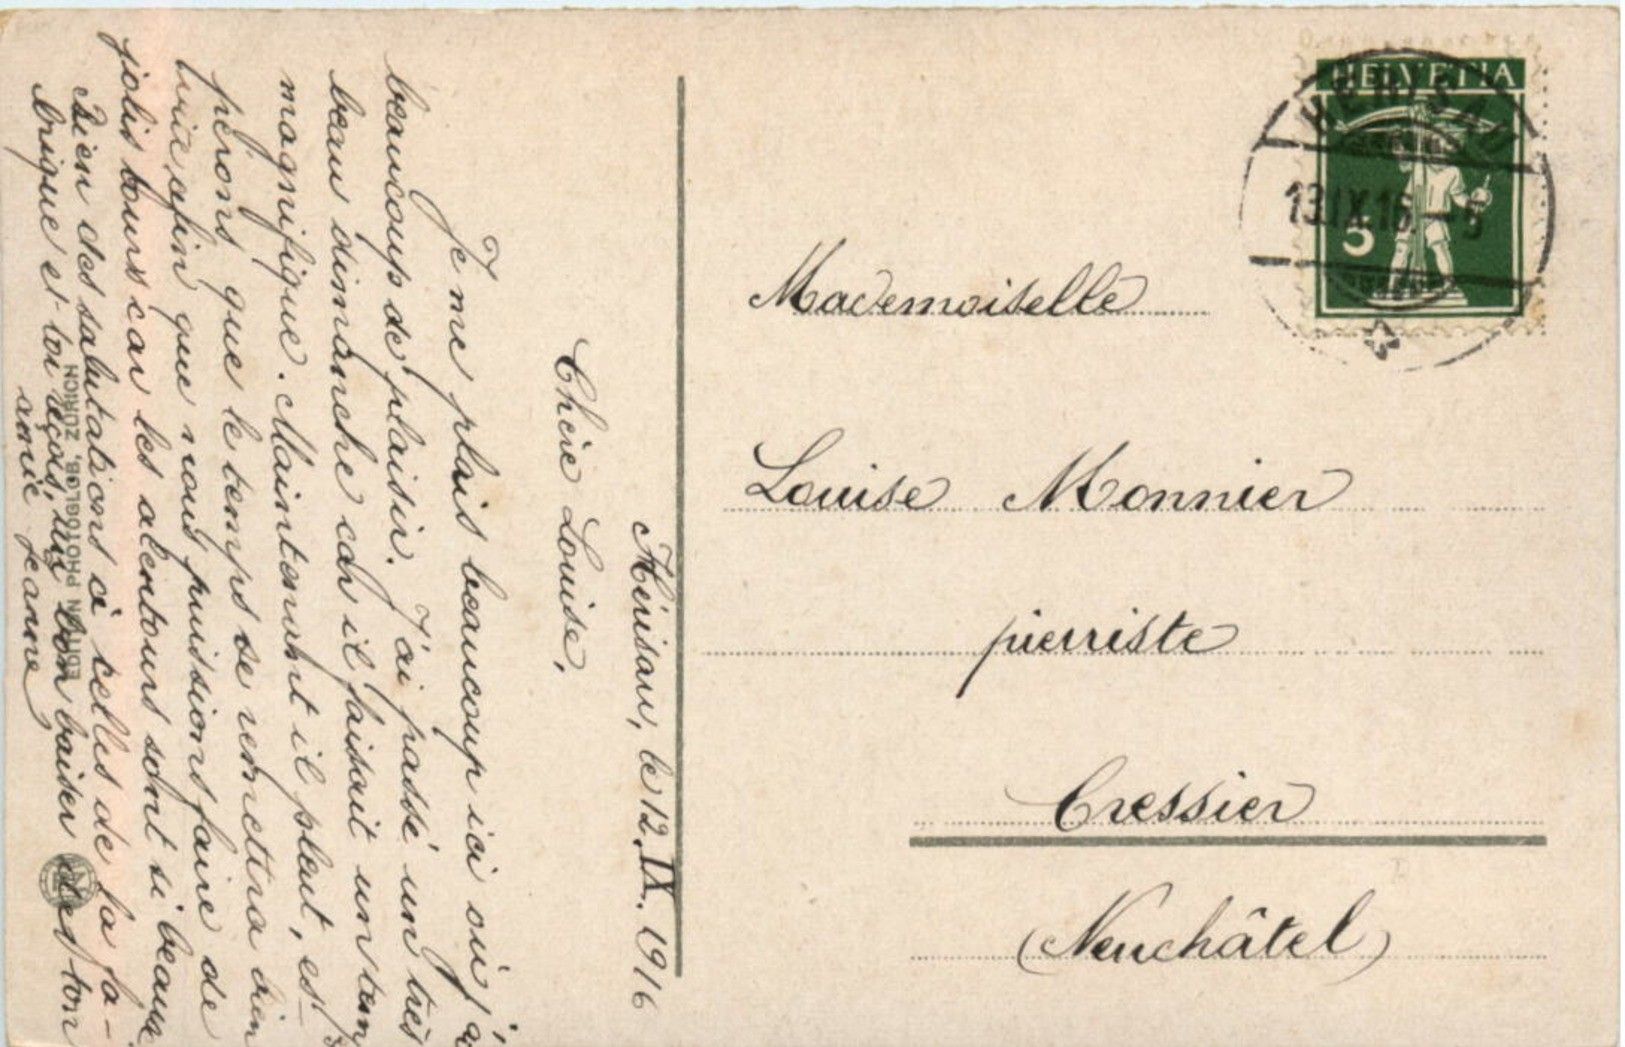 HELVETIA
5
HERISAU
13.IX.16.
Mademoiselle
Louise Monnier
pierriste
Cressier
(Neuchâtel)
Hérisau, le 12.IX.1916
Chère Louise,
Je me plais beaucoup ici où j'ai
beaucoup de plaisir. J'ai passé un très
beau dimanche car il faisait un tem
magnifique. Maintenant il pleut, es-
pérons que le temps se remettra bien
vite, afin que nous puissions faire de
jolis tours car les alentours sont si beaux
Bien des salutations à celles de la fa-
brique et toi reçois, un bon baiser de ton
amie Jeanne
EDITION PHOTOGLOB, ZÜRICH